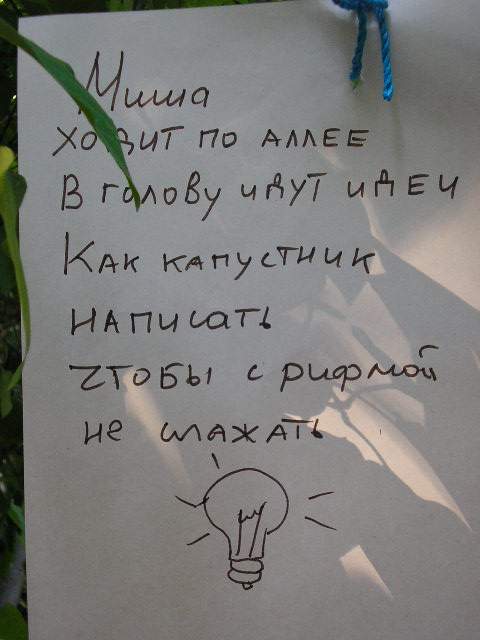 Миша
ХОДИТ ПО АЛЛЕЕ
В голову идут идеи
Как капустник
написать
чтобы с рифмой
не лажать